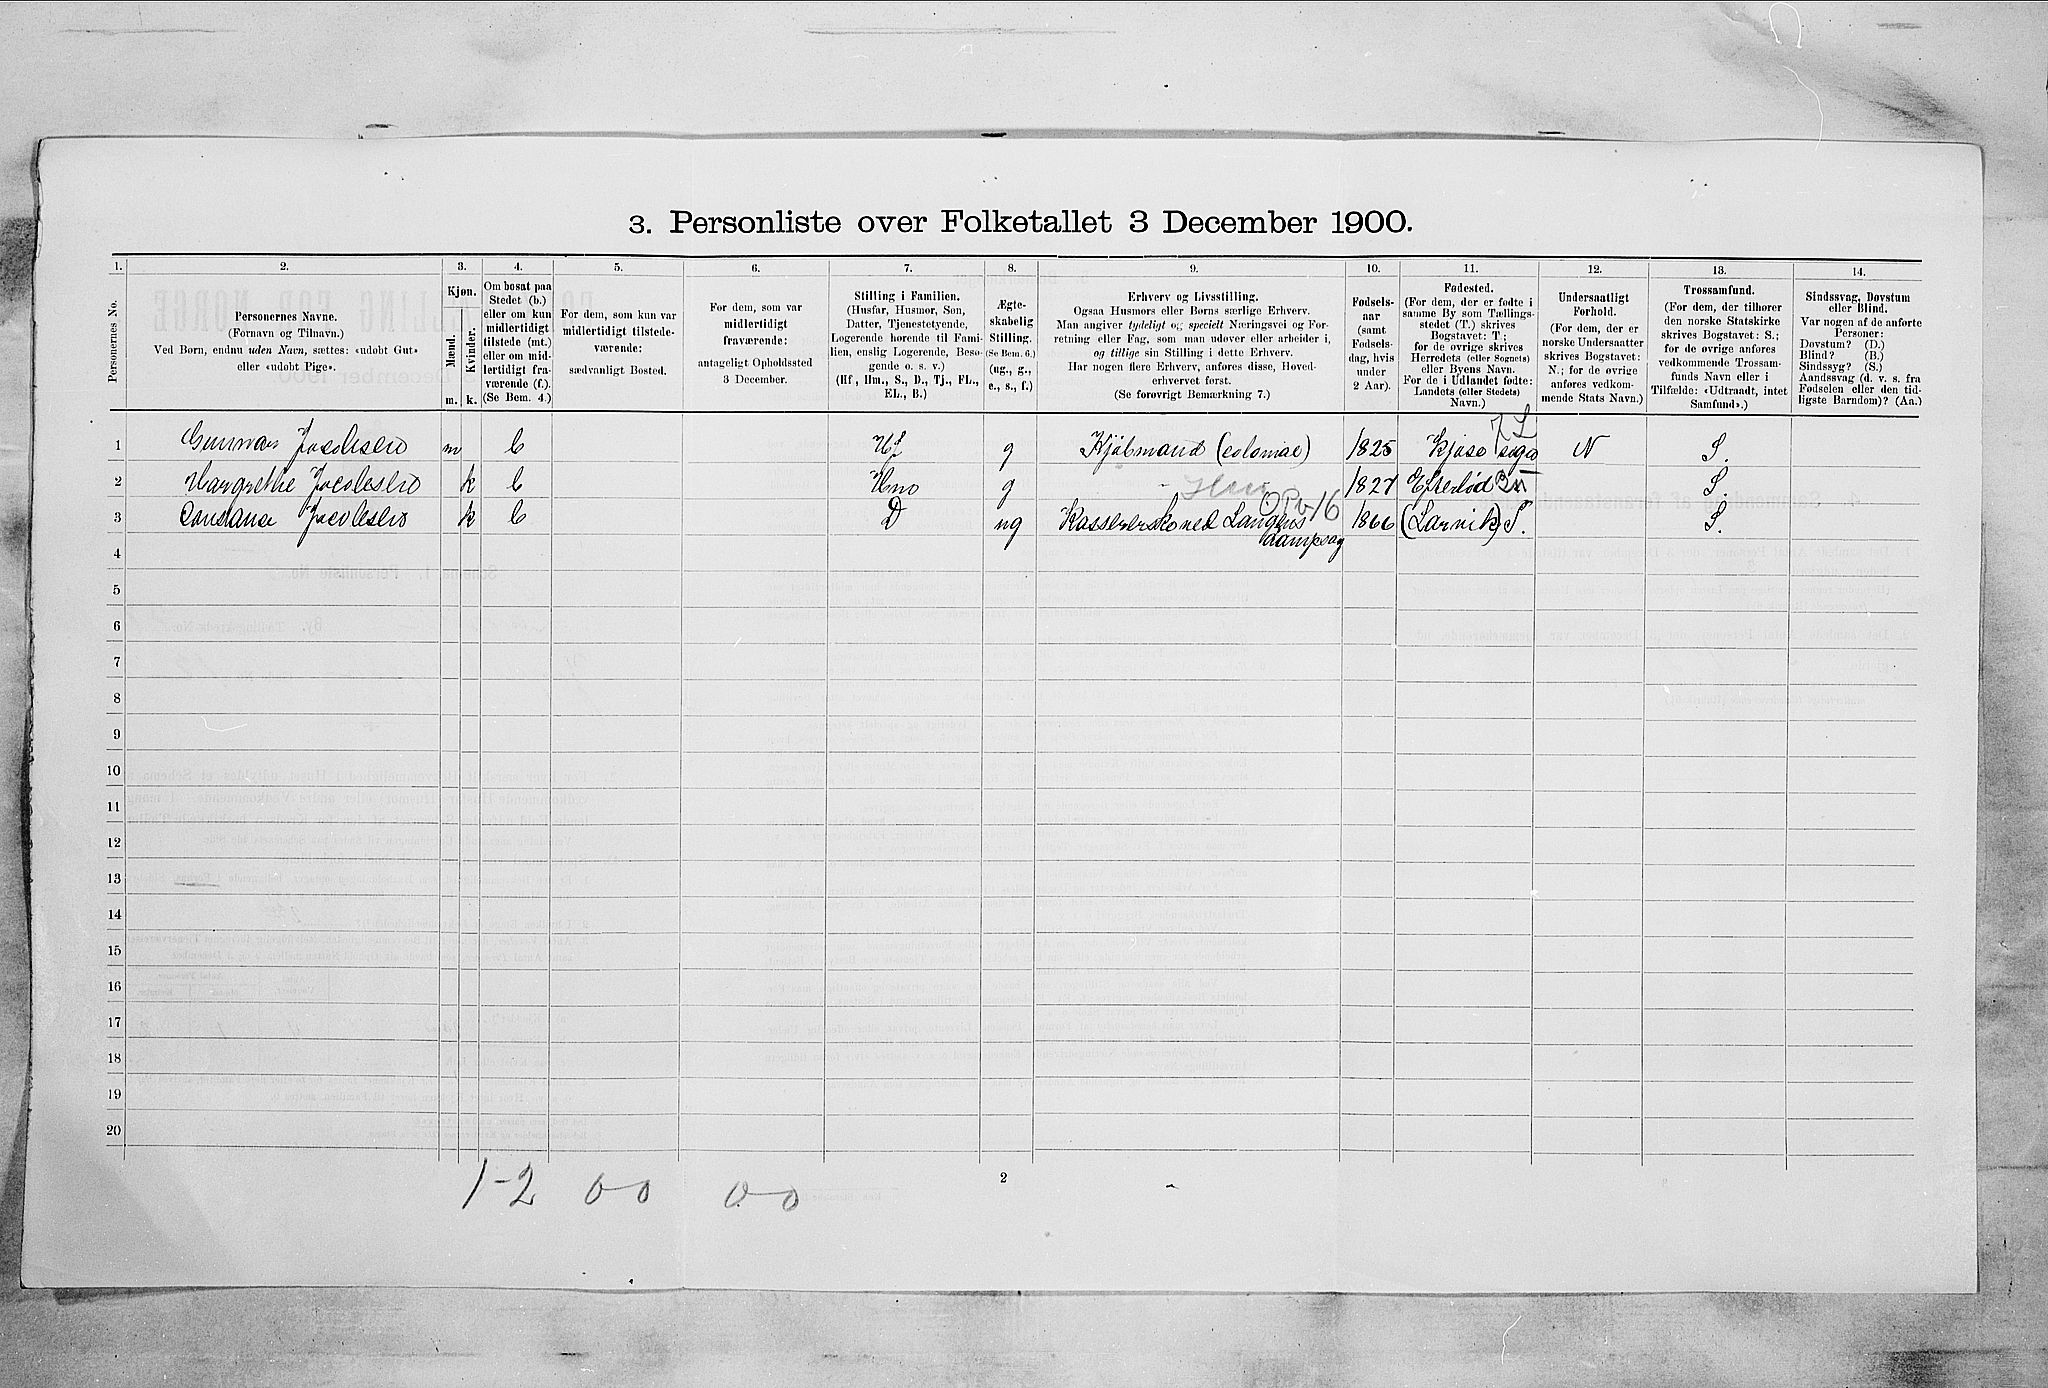 3. Personliste over Folketallet 3 December 1900.
1. 2. 3. 4. 5. 6. 7. 8. 9. 10. 11. 12. 13. 14.
Personernes No.
Personernes Navne.
(Fornavn og Tilnavn.)
Ved Børn, endnu uden Navn, sættes: «udøbt Gut»
eller «udøbt Pige».
Kjøn.
Mænd.
Kvinder.
m. k.
Om bosat paa
Stedet (b.)
eller om kun
midlertidigt
tilstede (mt.)
eller om mid-
lertidigt fra-
værende (f.).
(Se Bem. 4.)
For dem, som kun var
midlertidigt tilstede-
værende:
sædvanligt Bosted.
For dem, som var
midlertidigt
fraværende:
antageligt Opholdssted
3 December.
Stilling i Familien.
(Husfar, Husmor, Søn,
Datter, Tjenestetyende,
Logerende hørende til Fami-
lien, enslig Logerende, Besø-
gende o. s. v.)
(Hf., Hm., S., D., Tj., FL.,
EL., B.)
Ægte-
skabelig
Stilling.
(Se Bem. 6.)
(ug., g.,
e., s., f.)
Erhverv og Livsstilling.
Ogsaa Husmors eller Børns særlige Erhverv.
Man angiver tydeligt og specielt Næringsvei og For-
retning eller Fag, som man udøver eller arbeider i,
og tillige sin Stilling i dette Erhverv.
Har nogen flere Erhverv, anføres disse, Hoved-
erhvervet først.
(Se forøvrigt Bemærkning 7.)
Fødsels-
aar
(samt
Fødsels-
dag, hvis
under
2 Aar).
Fødested.
(For dem, der er fødte i
samme By som Tællings-
stedet (T.) skrives
Bogstavet: T.;
for de øvrige skrives
Herredets (eller Sognets)
eller Byens Navn.
For de i Udlandet fødte:
Landets (eller Stedets)
Navn.)
Undersaatligt
Forhold.
(For dem, der er
norske Undersaatter
skrives Bogstavet:
N.; for de øvrige
anføres vedkom-
mende Stats Navn.)
Trossamfund.
(For dem, der tilhører
den norske Statskirke
skrives Bogstavet: S.;
for de øvrige anføres
vedkommende Trossam-
funds Navn eller i
Tilfælde: «Udtraadt, intet
Samfund».)
Sindssvag, Døvstum
eller Blind.
Var nogen af de anførte
Personer:
Døvstum? (D.)
Blind? (B.)
Sindssyg? (S.)
Aandssvag (d. v. s. fra
Fødselen eller den tid-
ligste Barndom)? (Aa.)
1 Gunnar Jacobsen m b Hf g Kjøbmand (colonial) 1825 Kjose sogn N S.
2 Margrethe Jacobsen k b Hm g 1827 Efterløt S.
3 Constance Jacobsen k b D ug Kassererske ved Langes 1866 (Larvik) T. S.
dampsag
4
5
6
7
8
9
10
11
12
13
14
15
16
17
18
19
20
1-2 0-0 0-0
2